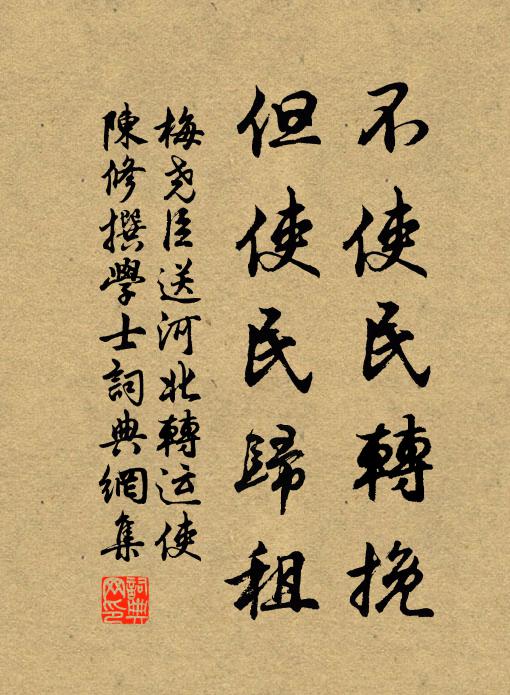 不使民轉挽
但使民歸租
梅堯臣送河北轉运使
陳修撰學士詞典網集
詞典网印